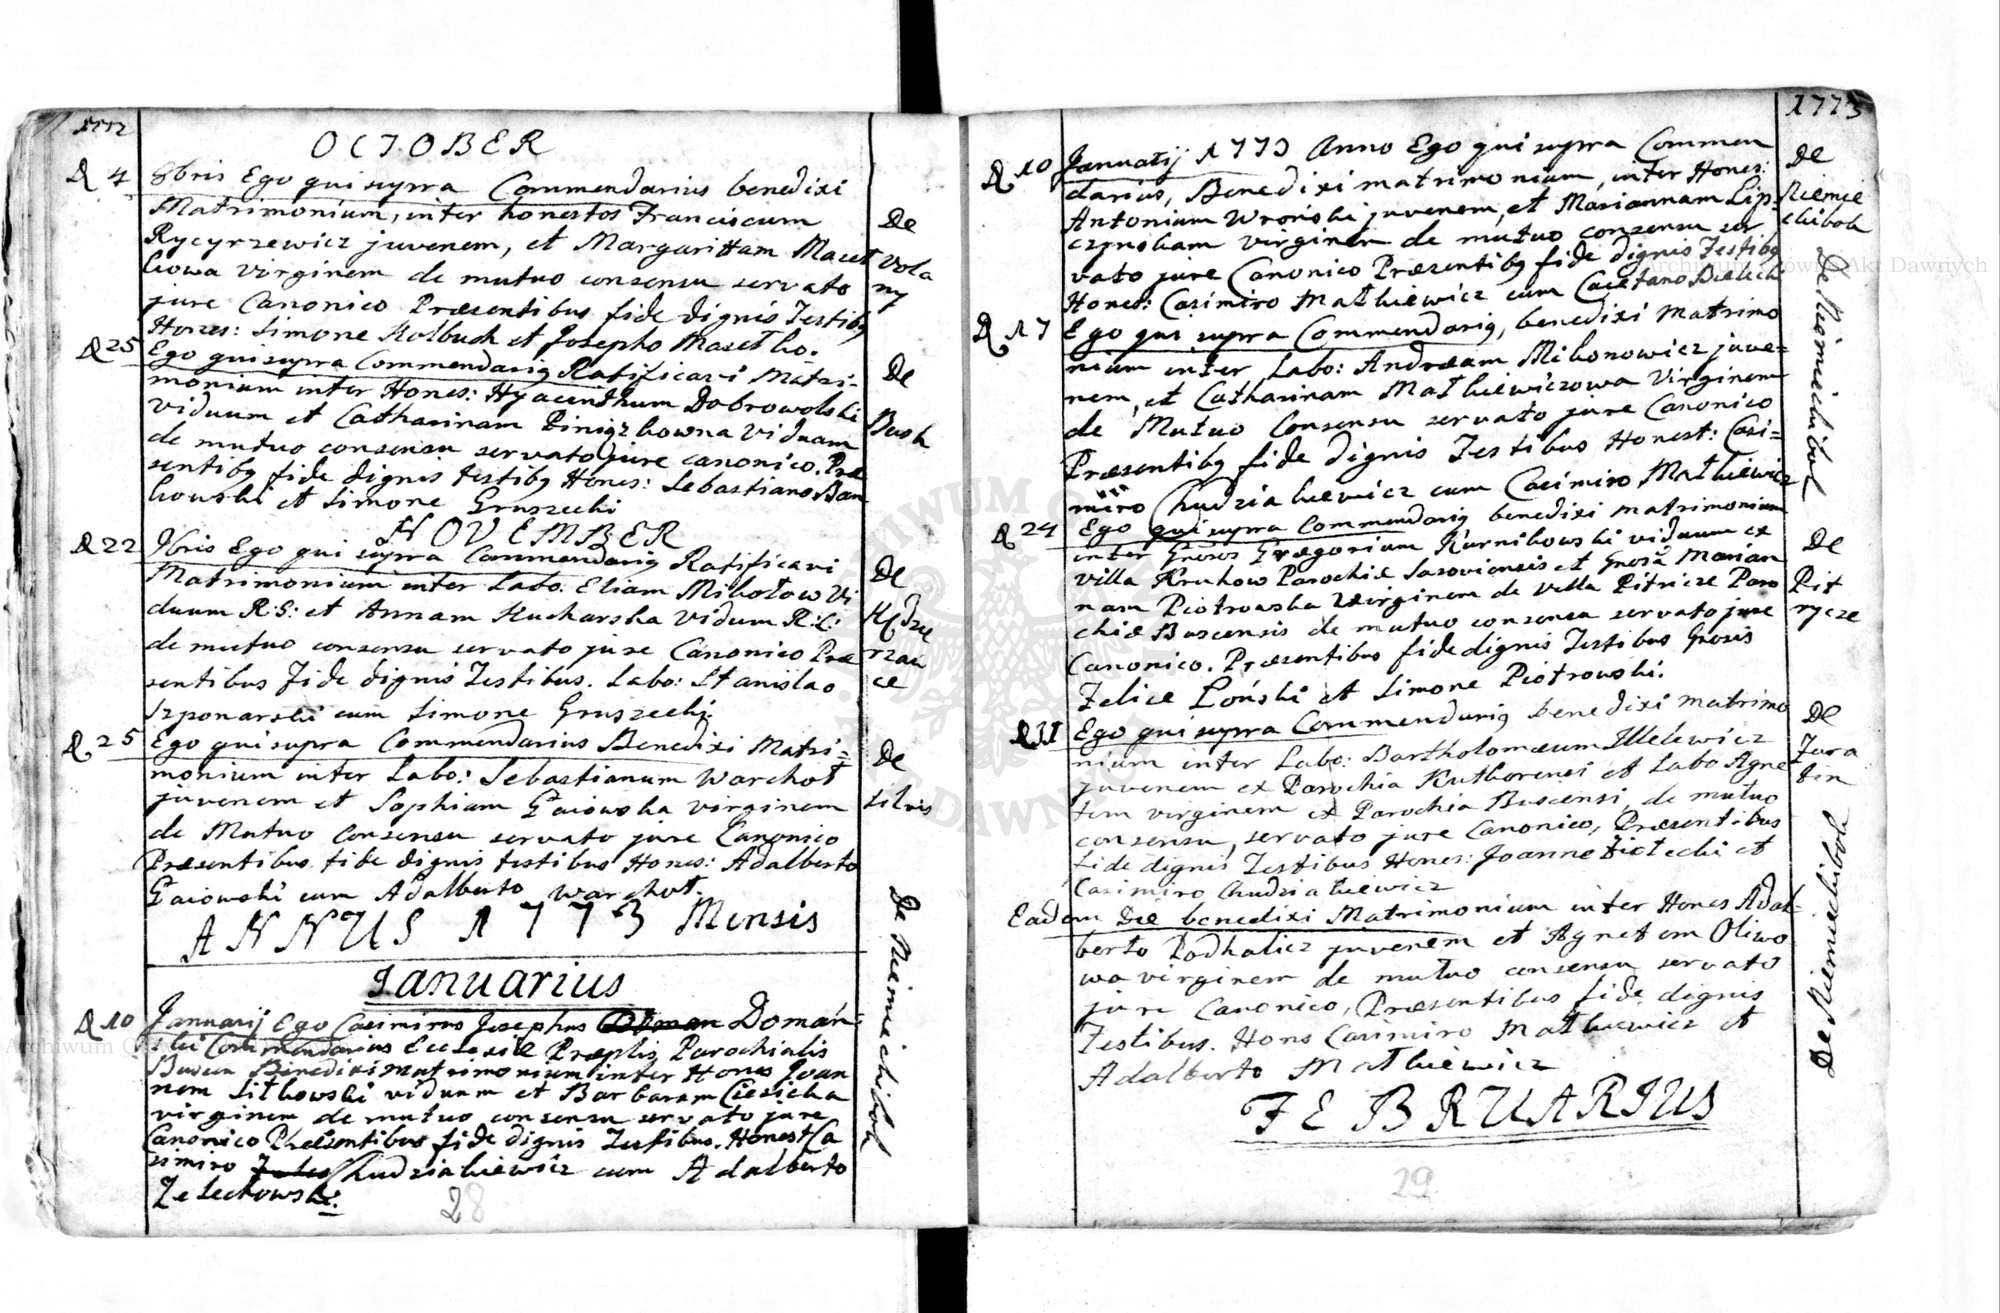 1772
OCTOBER
D 4 8bris Ego qui supra Commendarius benedixi
Matrimonium, inter honestos Franciscum
De
Rycyrzewicz juvenem, et Margaritam Maset
Vola
kowa virginem de mutuo consensu servato
ny
jure Canonico Præsentibus fide dignis Testibg
Hones: Simone Kolbuch et Josepho Masetko.
D 25 Ego qui supra Commendarig Ratificavi Matri-
De
monium inter Hones: Hyacinthum Dobrowolski
viduum et Catharinam viduam
Busk
de mutuo consensu servato jure canonico. Præ
sentibg fide dignis testibg Hones: Sebastiano Ban
kowski et Simone Gruszecki
NOVEMBER
D 22 9bris Ego qui supra Commendarig Ratificavi
Matrimonium inter Labo: Eliam Mikołow Vi
De
duum R: G: et Annam Kucharska Viduam R: L:
de mutuo consensu servato jure Canonico Præ
sentibus Fide dignis Testibus. Labo: Stanislao
Szponarski cum Simone Gruszecki.
D 25 Ego qui supra Commendarius Benedixi Matri=
De
monium inter Labo: Sebastianum Warchoł
juvenem et Sophiam Gaiowska virginem
Silvis
de Mutuo Consensu servato jure Canonico
Præsentibus fide dignis testibus Hones: Adalberto
Gaiowski cum Adalberto Warchoł.
ANNUS 1773 Mensis
Januarius
D 10 Januarij Ego Casimirus Josephus Domań-
ski Commendarius Ecclesiæ Præptis Parochialis
Buscen Benedixi matrimonium inter Hones Joan
nem Sitkowski viduum et Barbaram Ciesicka
virginem de mutuo consensu servato jure
Canonico Præsentibus fide dignis Testibus. Honest Ca
simiro Chudziakiewicz cum Adalberto
Zelechowski.
De Niemieckibok
28
1773
D 10 Januarij 1773 Anno Ego qui supra Commen
De
darius, Benedixi matrimonium, inter Hones:
Niemie
Antonium Wroński juvenem, et Mariannam Lip-
ckibok
czynskam virginem de mutuo consensu ser
vato jure Canonico Præsentibg fide dignis Testibg
Hones: Casimiro Matkiewicz cum Caietano Bielich
D 17 Ego qui supra Commendarig, benedixi Matrimo
nium inter Labo: Andræam Mikonowicz juve=
nem, et Catharinam Matkiewiczowa Virginem
de Mutuo Consensu servato jure Canonico
Præsentibg fide dignis Testibus Honest: Casi=
miro Chudziakiewicz cum Casimiro Matkiewicz
De Niemieckibok
D 24 Ego qui supra Commendarig benedixi matrimonium
inter Grosos Grægorium Kurnikowski viduum ex
De
villa Krukow Parochiæ Sasoviensis et Grosa Marian
Pit
nam Piotrowska Virginem de villa Pitricze Paro
rycze
chiæ Buscensis de mutuo consensu servato jure
Canonico. Præsentibus fide dignis Testibus Grosis
Felice Łoński et Simone Piotrowski.
D 31 Ego qui supra Commendarig benedixi matrimo
De
nium inter Labo: Bartholomæum Illelewicz
Jura
juvenem ex Parochia Kutkorensi et Labo Agne
tin
tem virginem ex Parochia Buscensi, de mutuo
consensu, servato jure Canonico, Præsentibus
fide dignis Testibus Hones: Joanne et
Casimiro Chudziakiewicz
Eadem Die benedixi Matrimonium inter Hones Adal-
berto Podhalicz juvenem et Agnetem Oliwo
wa virginem de mutuo consensu servato
jure Canonico, Præsentibus fide dignis
Testibus. Hons Casimiro Matkiewicz et
Adalberto Matkiewicz
De Niemieckibok
FEBRUARIUS
29
Archiwum Główne Akt Dawnych